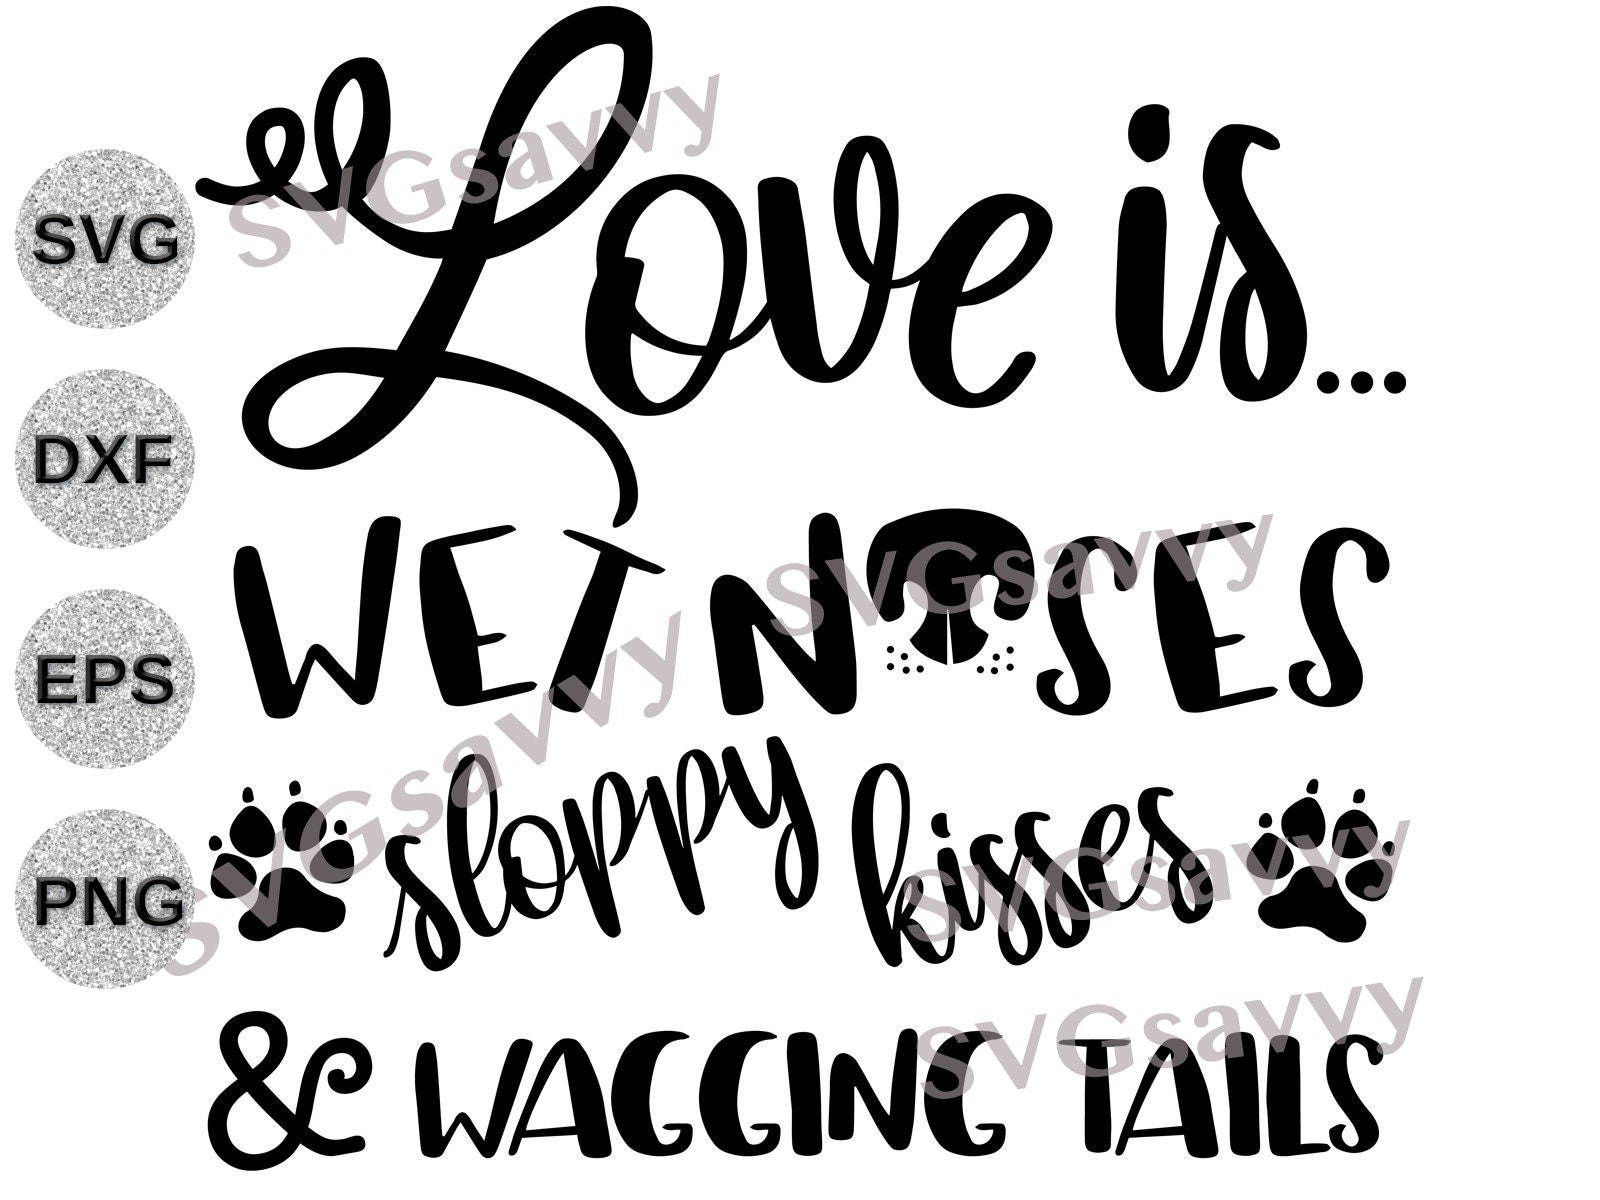 Love is...
WET NOSES
sloppy kisses
& WAGGING TAILS
SVG
DXF
EPS
PNG
SVGsavvy
SVGsavvy
SVGsavvy
SVGsavvy
SVGsavvy